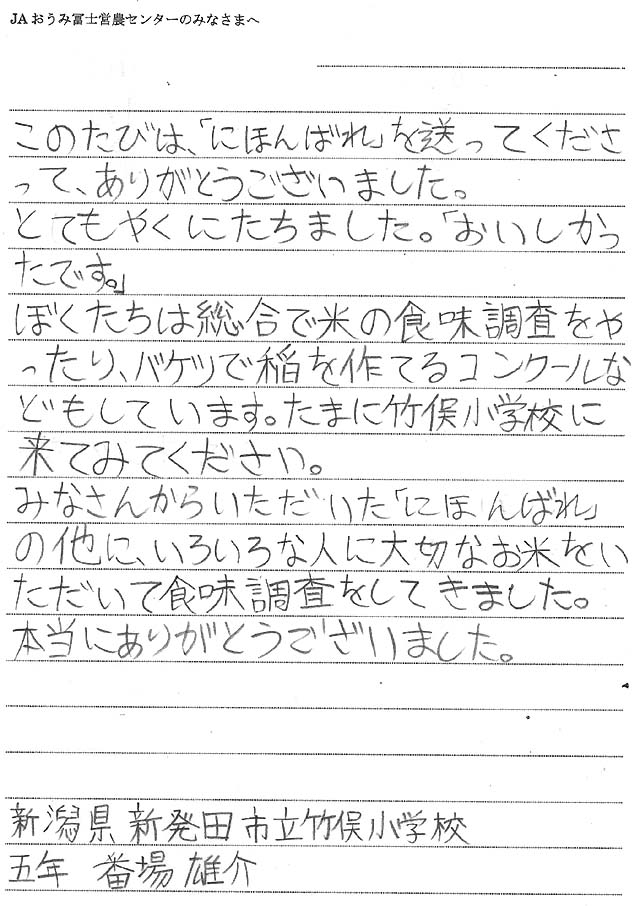 JAおうみ冨士営農センターのみなさまへ
このたびは、「にほんばれ」を送ってくださ
って、ありがとうございました。
とてもやくにたちました。「おいしかっ
たです。」
ぼくたちは総合で米の食味調査をや
ったり、バケツで稲を作てるコンクールな
どもしています。たまに竹俣小学校に
来てみてください。
みなさんからいただいた「にほんばれ」
の他に、いろいろな人に大切なお米をい
ただいて食味調査をしてきました。
本当にありがとうございました。
新潟県新発田市立竹俣小学校
五年 番場雄介